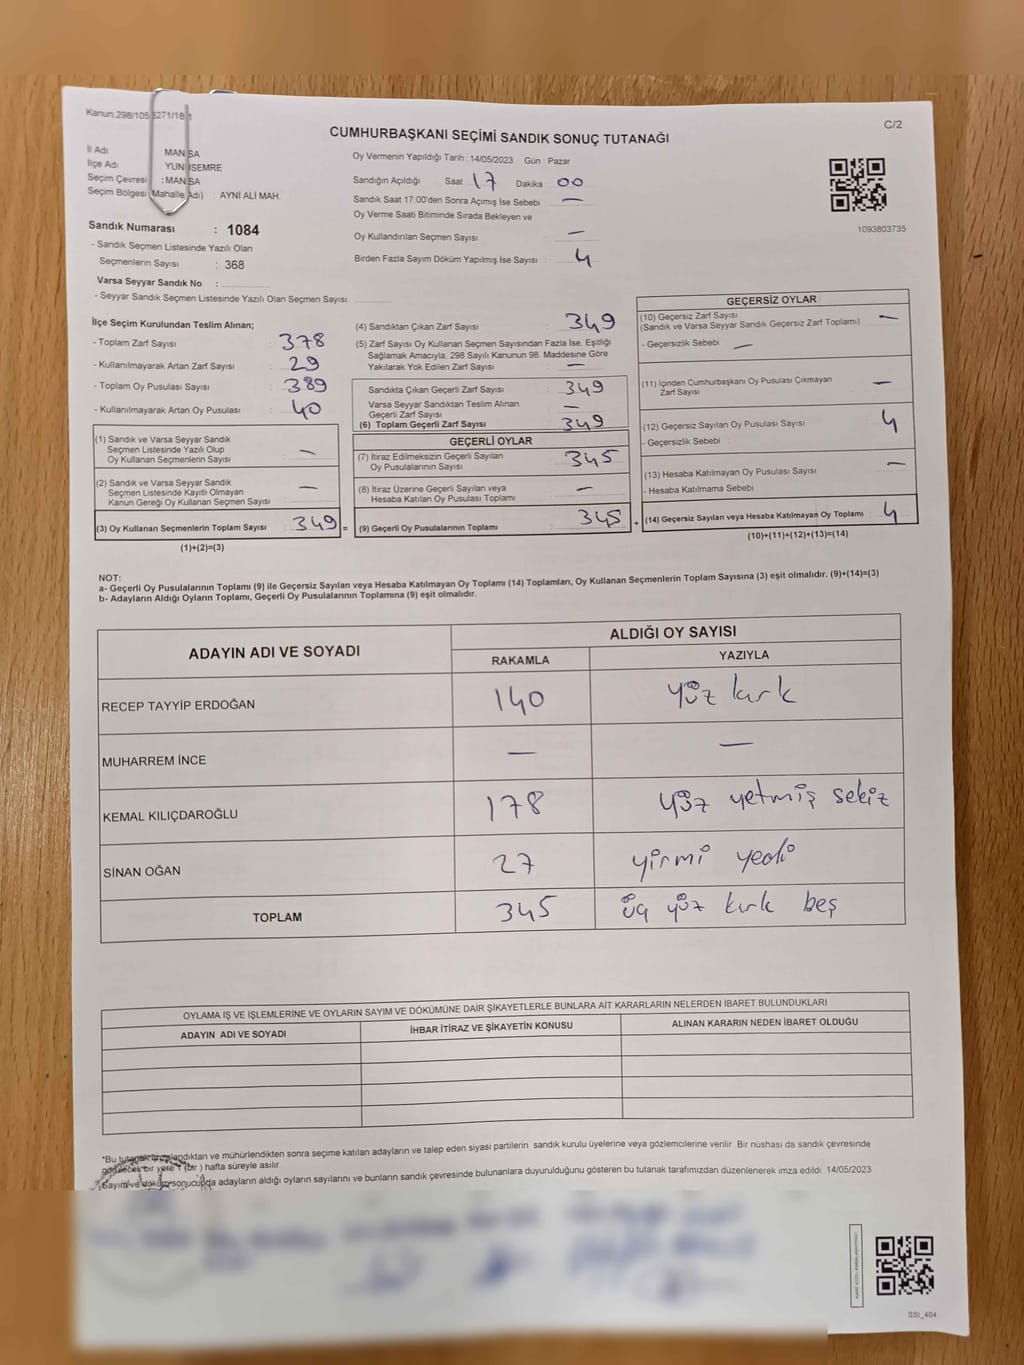 Kanun:298/105 6271/18
CUMHURBAŞKANI SEÇİMİ SANDIK SONUÇ TUTANAĞI
C/2
İl Adı : MANİSA
İlçe Adı : YUNUSEMRE
Seçim Çevresi : MANİSA
Seçim Bölgesi (Mahalle Adı) : AYNİ ALİ MAH.
Oy Vermenin Yapıldığı Tarih : 14/05/2023 Gün : Pazar
Sandığın Açıldığı Saat 17 Dakika 00
Sandık Saat 17:00'den Sonra Açımış İse Sebebi —
Oy Verme Saati Bitiminde Sırada Bekleyen ve
Oy Kullandırılan Seçmen Sayısı : —
Birden Fazla Sayım Döküm Yapılmış İse Sayısı : 4
1093803735
Sandık Numarası : 1084
- Sandık Seçmen Listesinde Yazılı Olan
Seçmenlerin Sayısı : 368
Varsa Seyyar Sandık No :
- Seyyar Sandık Seçmen Listesinde Yazılı Olan Seçmen Sayısı:
İlçe Seçim Kurulundan Teslim Alınan;
- Toplam Zarf Sayısı : 378
- Kullanılmayarak Artan Zarf Sayısı : 29
- Toplam Oy Pusulası Sayısı : 389
- Kullanılmayarak Artan Oy Pusulası : 40
(1) Sandık ve Varsa Seyyar Sandık
Seçmen Listesinde Yazılı Olup
Oy Kullanan Seçmenlerin Sayısı : —
(2) Sandık ve Varsa Seyyar Sandık
Seçmen Listesinde Kayıtlı Olmayan
Kanun Gereği Oy Kullanan Seçmen Sayısı : —
(3) Oy Kullanan Seçmenlerin Toplam Sayısı : 349 =
(1)+(2)=(3)
(4) Sandıktan Çıkan Zarf Sayısı : 349
(5) Zarf Sayısı Oy Kullanan Seçmen Sayısından Fazla İse, Eşitliği
Sağlamak Amacıyla, 298 Sayılı Kanunun 98. Maddesine Göre
Yakılarak Yok Edilen Zarf Sayısı : —
Sandıkta Çıkan Geçerli Zarf Sayısı : 349
Varsa Seyyar Sandıktan Teslim Alınan
Geçerli Zarf Sayısı : —
(6) Toplam Geçerli Zarf Sayısı : 349
GEÇERLİ OYLAR
(7) İtiraz Edilmeksizin Geçerli Sayılan
Oy Pusulalarının Sayısı : 345
(8) İtiraz Üzerine Geçerli Sayılan veya
Hesaba Katılan Oy Pusulası Toplamı : —
(9) Geçerli Oy Pusulalarının Toplamı : 345 +
GEÇERSİZ OYLAR
(10) Geçersiz Zarf Sayısı
(Sandık ve Varsa Seyyar Sandık Geçersiz Zarf Toplamı) : —
- Geçersizlik Sebebi : —
(11) İçinden Cumhurbaşkanı Oy Pusulası Çıkmayan
Zarf Sayısı : —
(12) Geçersiz Sayılan Oy Pusulası Sayısı : 4
- Geçersizlik Sebebi :
(13) Hesaba Katılmayan Oy Pusulası Sayısı : —
- Hesaba Katılmama Sebebi :
(14) Geçersiz Sayılan veya Hesaba Katılmayan Oy Toplamı : 4
(10)+(11)+(12)+(13)=(14)
NOT:
a- Geçerli Oy Pusulalarının Toplamı (9) ile Geçersiz Sayılan veya Hesaba Katılmayan Oy Toplamı (14) Toplamları, Oy Kullanan Seçmenlerin Toplam Sayısına (3) eşit olmalıdır. (9)+(14)=(3)
b- Adayların Aldığı Oyların Toplamı, Geçerli Oy Pusulalarının Toplamına (9) eşit olmalıdır.
ADAYIN ADI VE SOYADI ALDIĞI OY SAYISI
RAKAMLA YAZIYLA
RECEP TAYYİP ERDOĞAN 140 yüz kırk
MUHARREM İNCE — —
KEMAL KILIÇDAROĞLU 178 yüz yetmiş sekiz
SİNAN OĞAN 27 yirmi yedi
TOPLAM 345 üç yüz kırk beş
OYLAMA İŞ VE İŞLEMLERİNE VE OYLARIN SAYIM VE DÖKÜMÜNE DAİR ŞİKAYETLERLE BUNLARA AİT KARARLARIN NELERDEN İBARET BULUNDUKLARI
ADAYIN ADI VE SOYADI İHBAR İTİRAZ VE ŞİKAYETİN KONUSU ALINAN KARARIN NEDEN İBARET OLDUĞU
*Bu tutanak imzalandıktan ve mühürlendikten sonra seçime katılan adayların ve talep eden siyasi partilerin sandık kurulu üyelerine veya gözlemcilerine verilir. Bir nüshası da sandık çevresinde
görülecek bir yere 1 (bir) hafta süreyle asılır.
*Sayım ve döküm sonucunda adayların aldığı oyların sayılarını ve bunların sandık çevresinde bulunanlara duyurulduğunu gösteren bu tutanak tarafımızdan düzenlenerek imza edildi. 14/05/2023
SSI_404